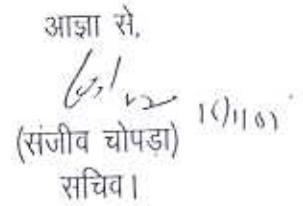 आज्ञा से,
(संजीव चोपड़ा)
सचिव।